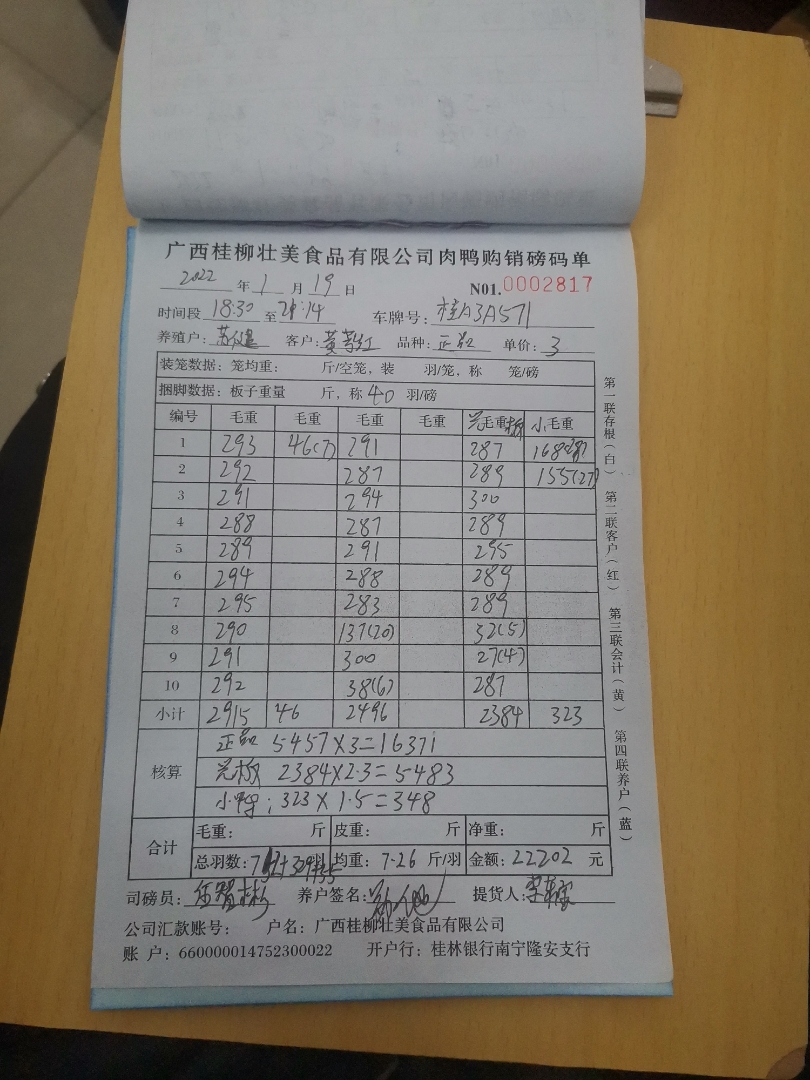 广西桂柳壮美食品有限公司肉鸭购销磅码单
2022 年 1 月 19 日 N01.0002817
时间段 18:30 至 21:14 车牌号: 桂A3A571
养殖户: 客户: 黄 红 品种: 正品 单价: 3
装笼数据: 笼均重: 斤/空笼, 装 羽/笼, 称 笼/磅
捆脚数据: 板子重量 斤, 称 40 羽/磅
编号 毛重 毛重 毛重 毛重 毛重 小毛重
1 293 46(7) 291 287 168(28)
2 292 287 289 155(27)
3 291 294 300
4 288 287 289
5 289 291 295
6 294 288 289
7 295 283 289
8 290 137(20) 32(5)
9 291 300 27(4)
10 292 38(6) 287
小计 2915 46 2496 2384 323
核算
正品 5457×3=16371
2384×2.3=5483
小鸭: 323×1.5=348
合计
毛重: 斤 皮重: 斤 净重: 斤
总羽数: 均重: 7.26 斤/羽 金额: 22202 元
司磅员: 养户签名: 提货人:
公司汇款账号: 户名: 广西桂柳壮美食品有限公司
账 户: 660000014752300022 开户行: 桂林银行南宁隆安支行
第一联存根(白) 第二联客户(红) 第三联会计(黄) 第四联养户(蓝)